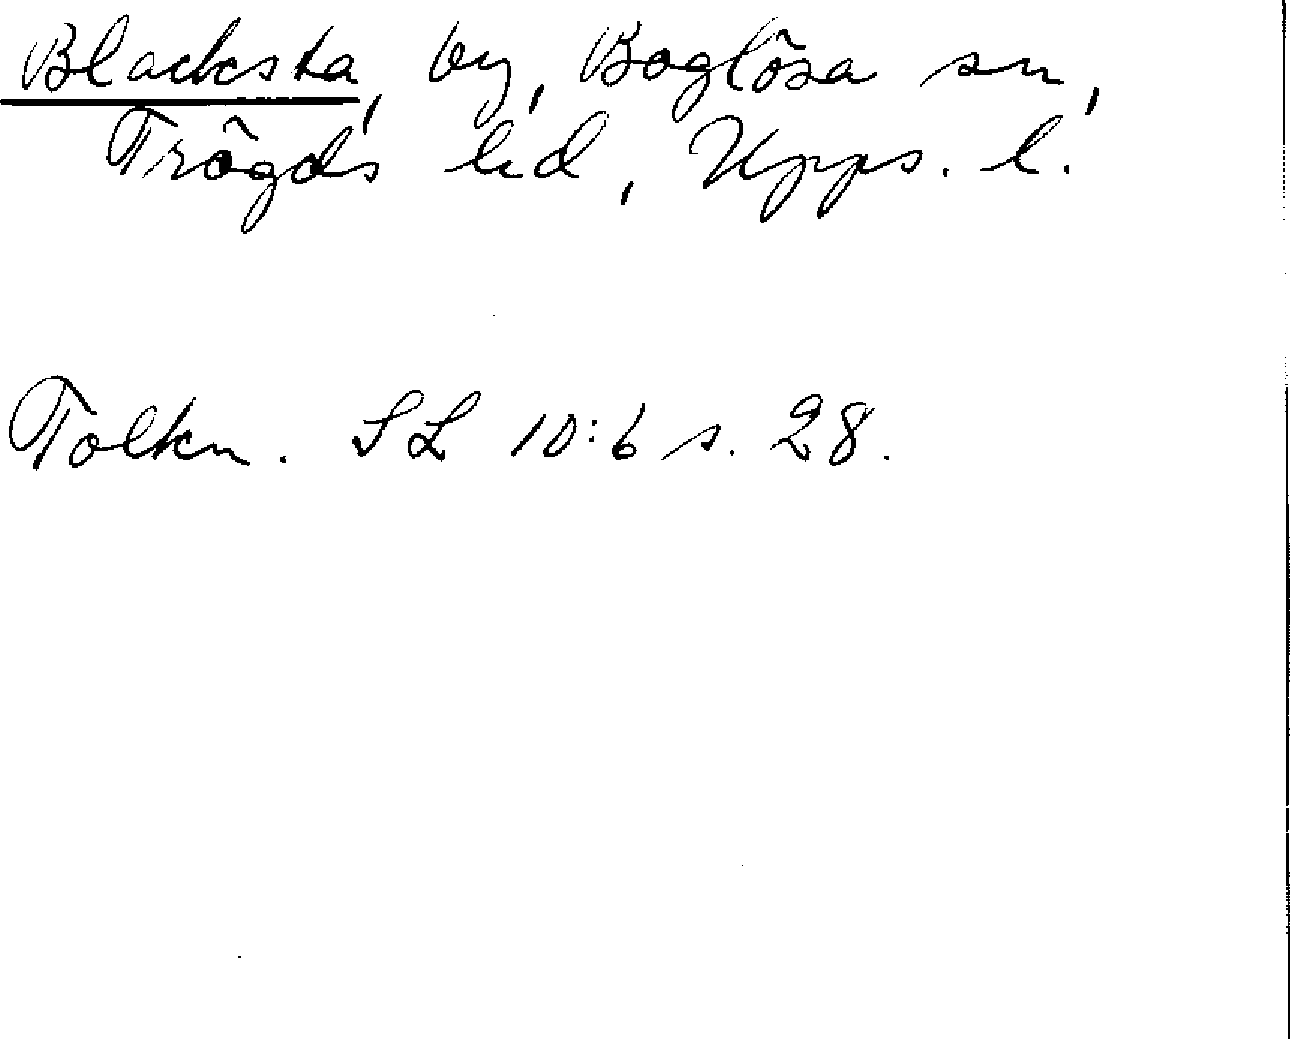 Blacksta, by, Boglösa sn,
Trögds hd, Upps. l.
Tolkn. SL 10:6 s. 28.